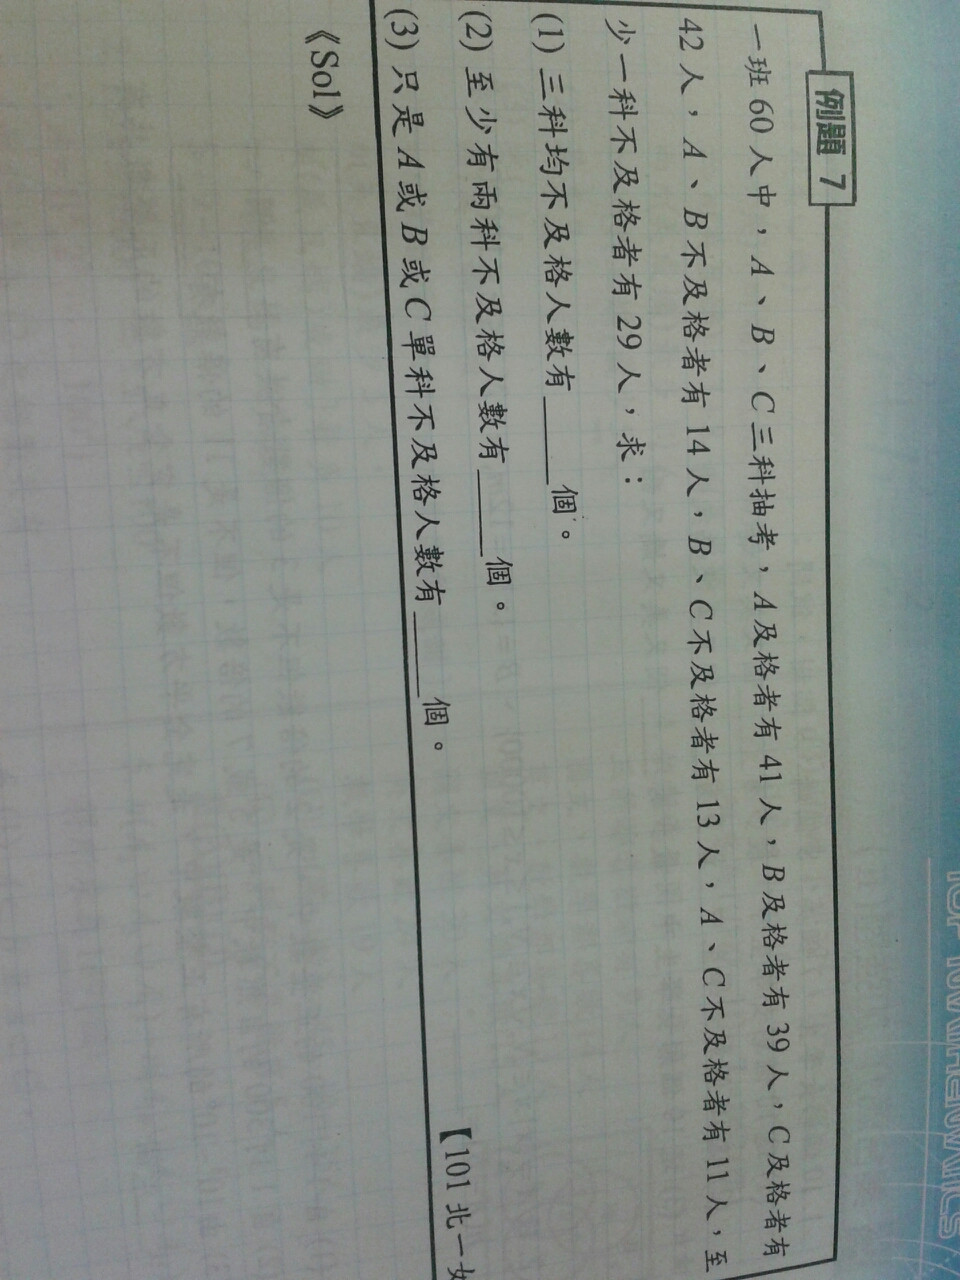 TOP MATHEMATICS
例題 7
一班 60 人中，A、B、C三科抽考，A及格者有 41 人，B及格者有 39 人，C及格者有
42 人，A、B不及格者有 14 人，B、C不及格者有 13 人，A、C不及格者有 11 人，至
少一科不及格者有 29 人，求：
(1) 三科均不及格人數有______個。
(2) 至少有兩科不及格人數有______個。
(3) 只是 A 或 B 或 C 單科不及格人數有______個。
【101 北一女
《Sol》